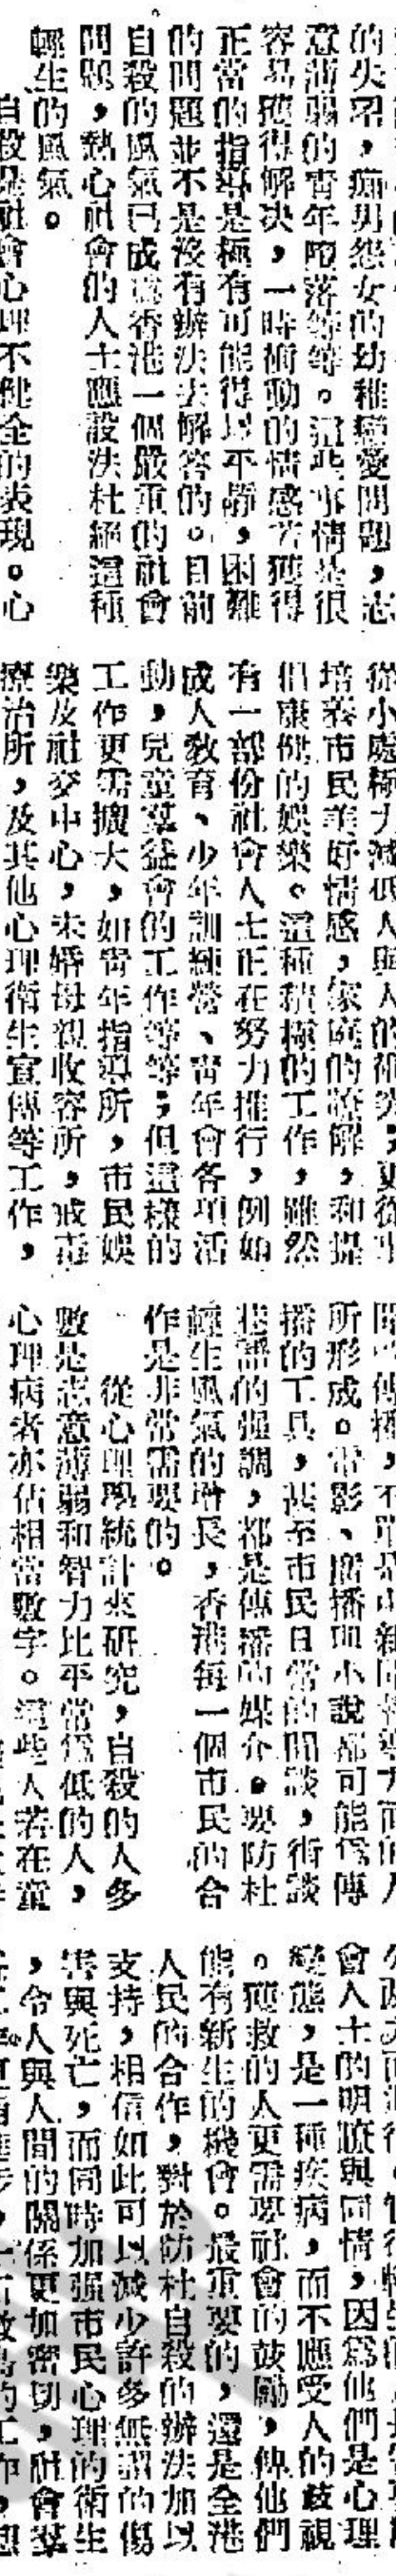 的失名，痴男怨女的幼稚戀愛問題，志
意薄弱的青年墮落等等。這些事情是很
容易獲得解決，一時衝動的情感若獲得
正當的指導是極有可能得以平靜，困難
的問題並不是沒有辦法去解答的。目前
自殺的風氣已成為香港一個嚴重的社會
問題，熱心社會的人士應設法杜絕這種
輕生的風氣。
自殺是社會心理不健全的表現。心
從小處極力減低人與人的衝突，更從
培養市民美好情感，家庭的諒解，和提
倡康健的娛樂。這種積極的工作，雖然
有一部份社會人士正在努力推行，例如
成人教育、少年訓練營、青年會各項活
動，兒童羣益會的工作等等；但這樣的
工作更需擴大，如青年指導所，市民娛
樂及社交中心，未婚母親收容所，戒毒
療治所，及其他心理衛生宣傳等工作，
所形成。電影、廣播和小說都可能為傳
播的工具，甚至市民日常的閒談，街談
巷語的強調，都是傳播的媒介。要防杜
輕生風氣的增長，香港每一個市民的合
作是非常需要的。
從心理學統計來研究，自殺的人多
數是志意薄弱和智力比平常為低的人，
心理病者亦佔相當數字。這些人若在童
會人士的明瞭與同情，因為他們是心理
變態，是一種疾病，而不應受人的歧視
。獲救的人更需要社會的鼓勵，俾他們
能有新生的機會。最重要的，還是全港
人民的合作，對於防杜自殺的辦法加以
支持，相信如此可以減少許多無謂的傷
害與死亡，而同時加強市民心理的衛生
，令人與人間的關係更加密切，社會羣